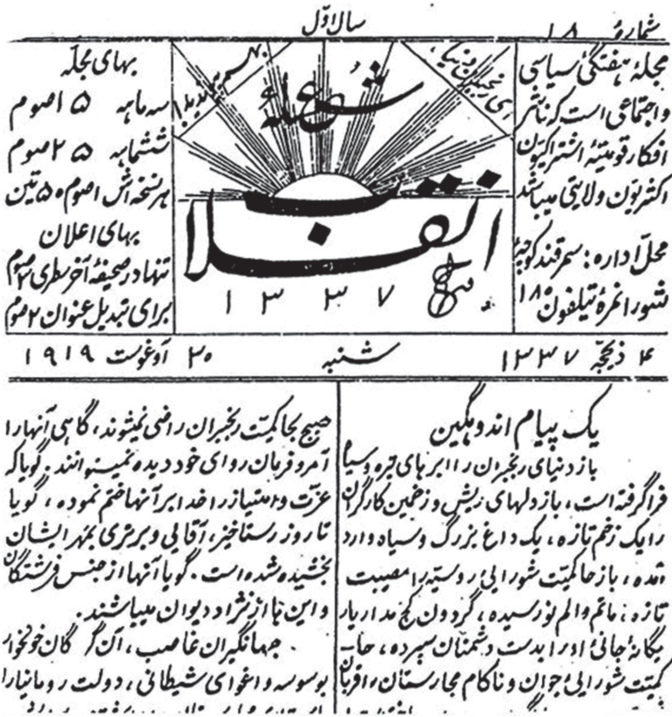 شمارهٔ ۱۸ سال اوّل
مجلهٔ هفتگی سیاسی
و اجتماعی است که ناشر
افکار قومیتهٔ اشتراکیون
ولایتی میباشد
محل اداره: سمرقند کوچهٔ
شورا نمرهٔ تیلفون ۱۸۰
شعلهٔ
انقلاب
۱۳۳۷
بهای مجله
سه ماهه ۱۵ صوم
ششماهه ۲۵ صوم
هر نسخه اش ۱ صوم ۵۰ تین
بهای اعلان
تنها در صحیفهٔ آخر سطری ۲ صوم
برای تبدیل عنوان ۲ صوم
۴ ذیحجه ۱۳۳۷ شنبه ۳۰ آوغوست ۱۹۱۹
یک پیام اندوهگین
باز دنیای رنجبران را ابرهای تیره و سیاه
فرا گرفته است، باز دلهای ریش و زخمین کارگران
را یک زخم تازه، یک داغ بزرگ و سیاه وارد
آمده، باز حاکمیت شورایی روسیه را مصیبت
تازه، ماتم و الم نو رسیده، گردون کج مدار یار
یگانهٔ جانی او را بدست دشمنان سپرده، حا-
کمیت شورایی جوان و ناکام مجارستان، اقربان
صبح بحاکمیت رنجبران راضی نمیشوند، گاهی آنها را
آمر و فرمان روای خود دیده نمیتوانند. گویا که
عزت و امتیاز را خدا بر آنها ختم نموده، گویا
تا روز رستاخیز، آقایی و برتری بمهر ایشان
بخشیده شده است. گویا آنها از جنس فرشتگان
و این یا از نژاد دیوان میباشند.
جهانگیران غاصب، آن گرگان خونخوار
بوسوسه و اغوای شیطانی، دولت رومانیا را